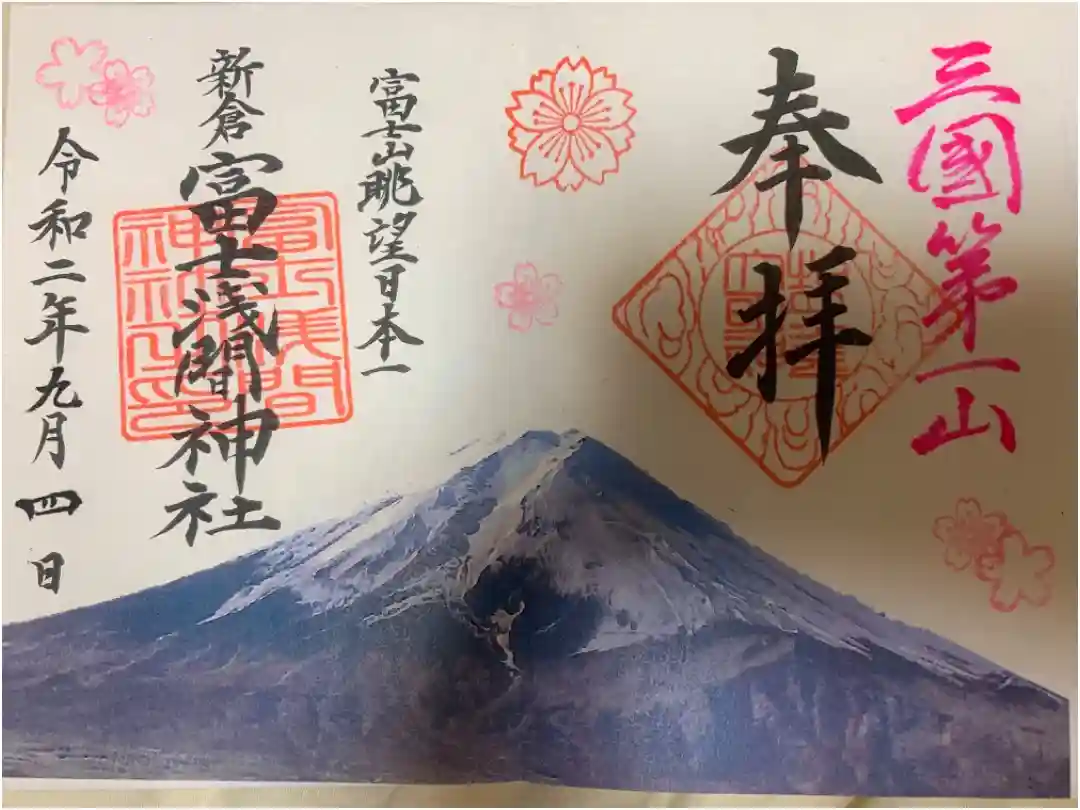 三國第一山
奉拝
富士山眺望日本一
新倉富士浅間神社
富士浅間
神社之印
令和二年九月四日